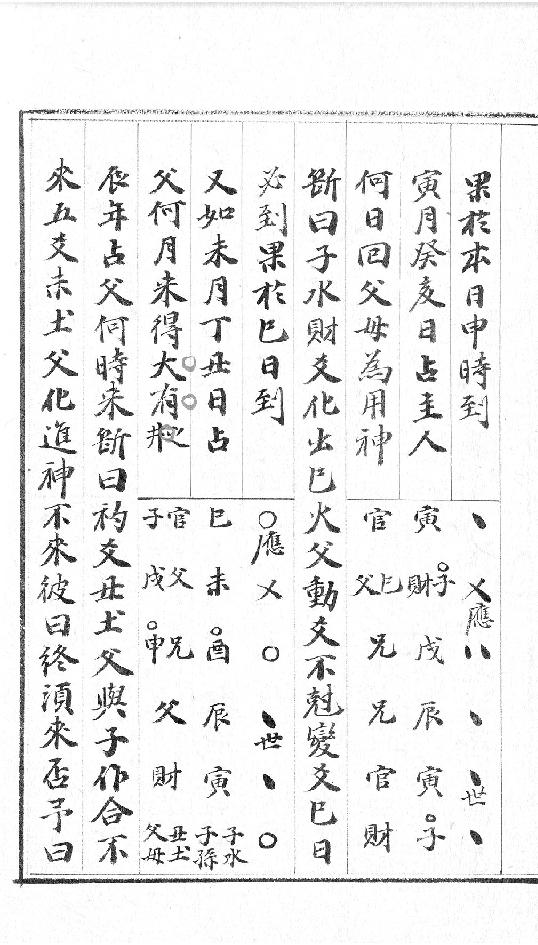 果於本日申時到
、 乂應 、、 、 、世 、
寅月癸亥日占主人
寅 子財 戌 辰 寅 子
何日回父母為用神
官 巳父 兄 兄 官 財
斷曰子水財爻化出巳火父動爻不尅變爻巳日
必到果於巳日到
○應 乂 ○ 、世 、 ○
又如未月丁丑日占
巳 未 酉 辰 寅 子水子孫
父何月来得大有之井
官子 父戌 兄申 父 財 丑土父母
辰年占父何時来斷曰初爻丑土父與子作合不
來五爻未土父化進神不來彼曰終須來否予曰